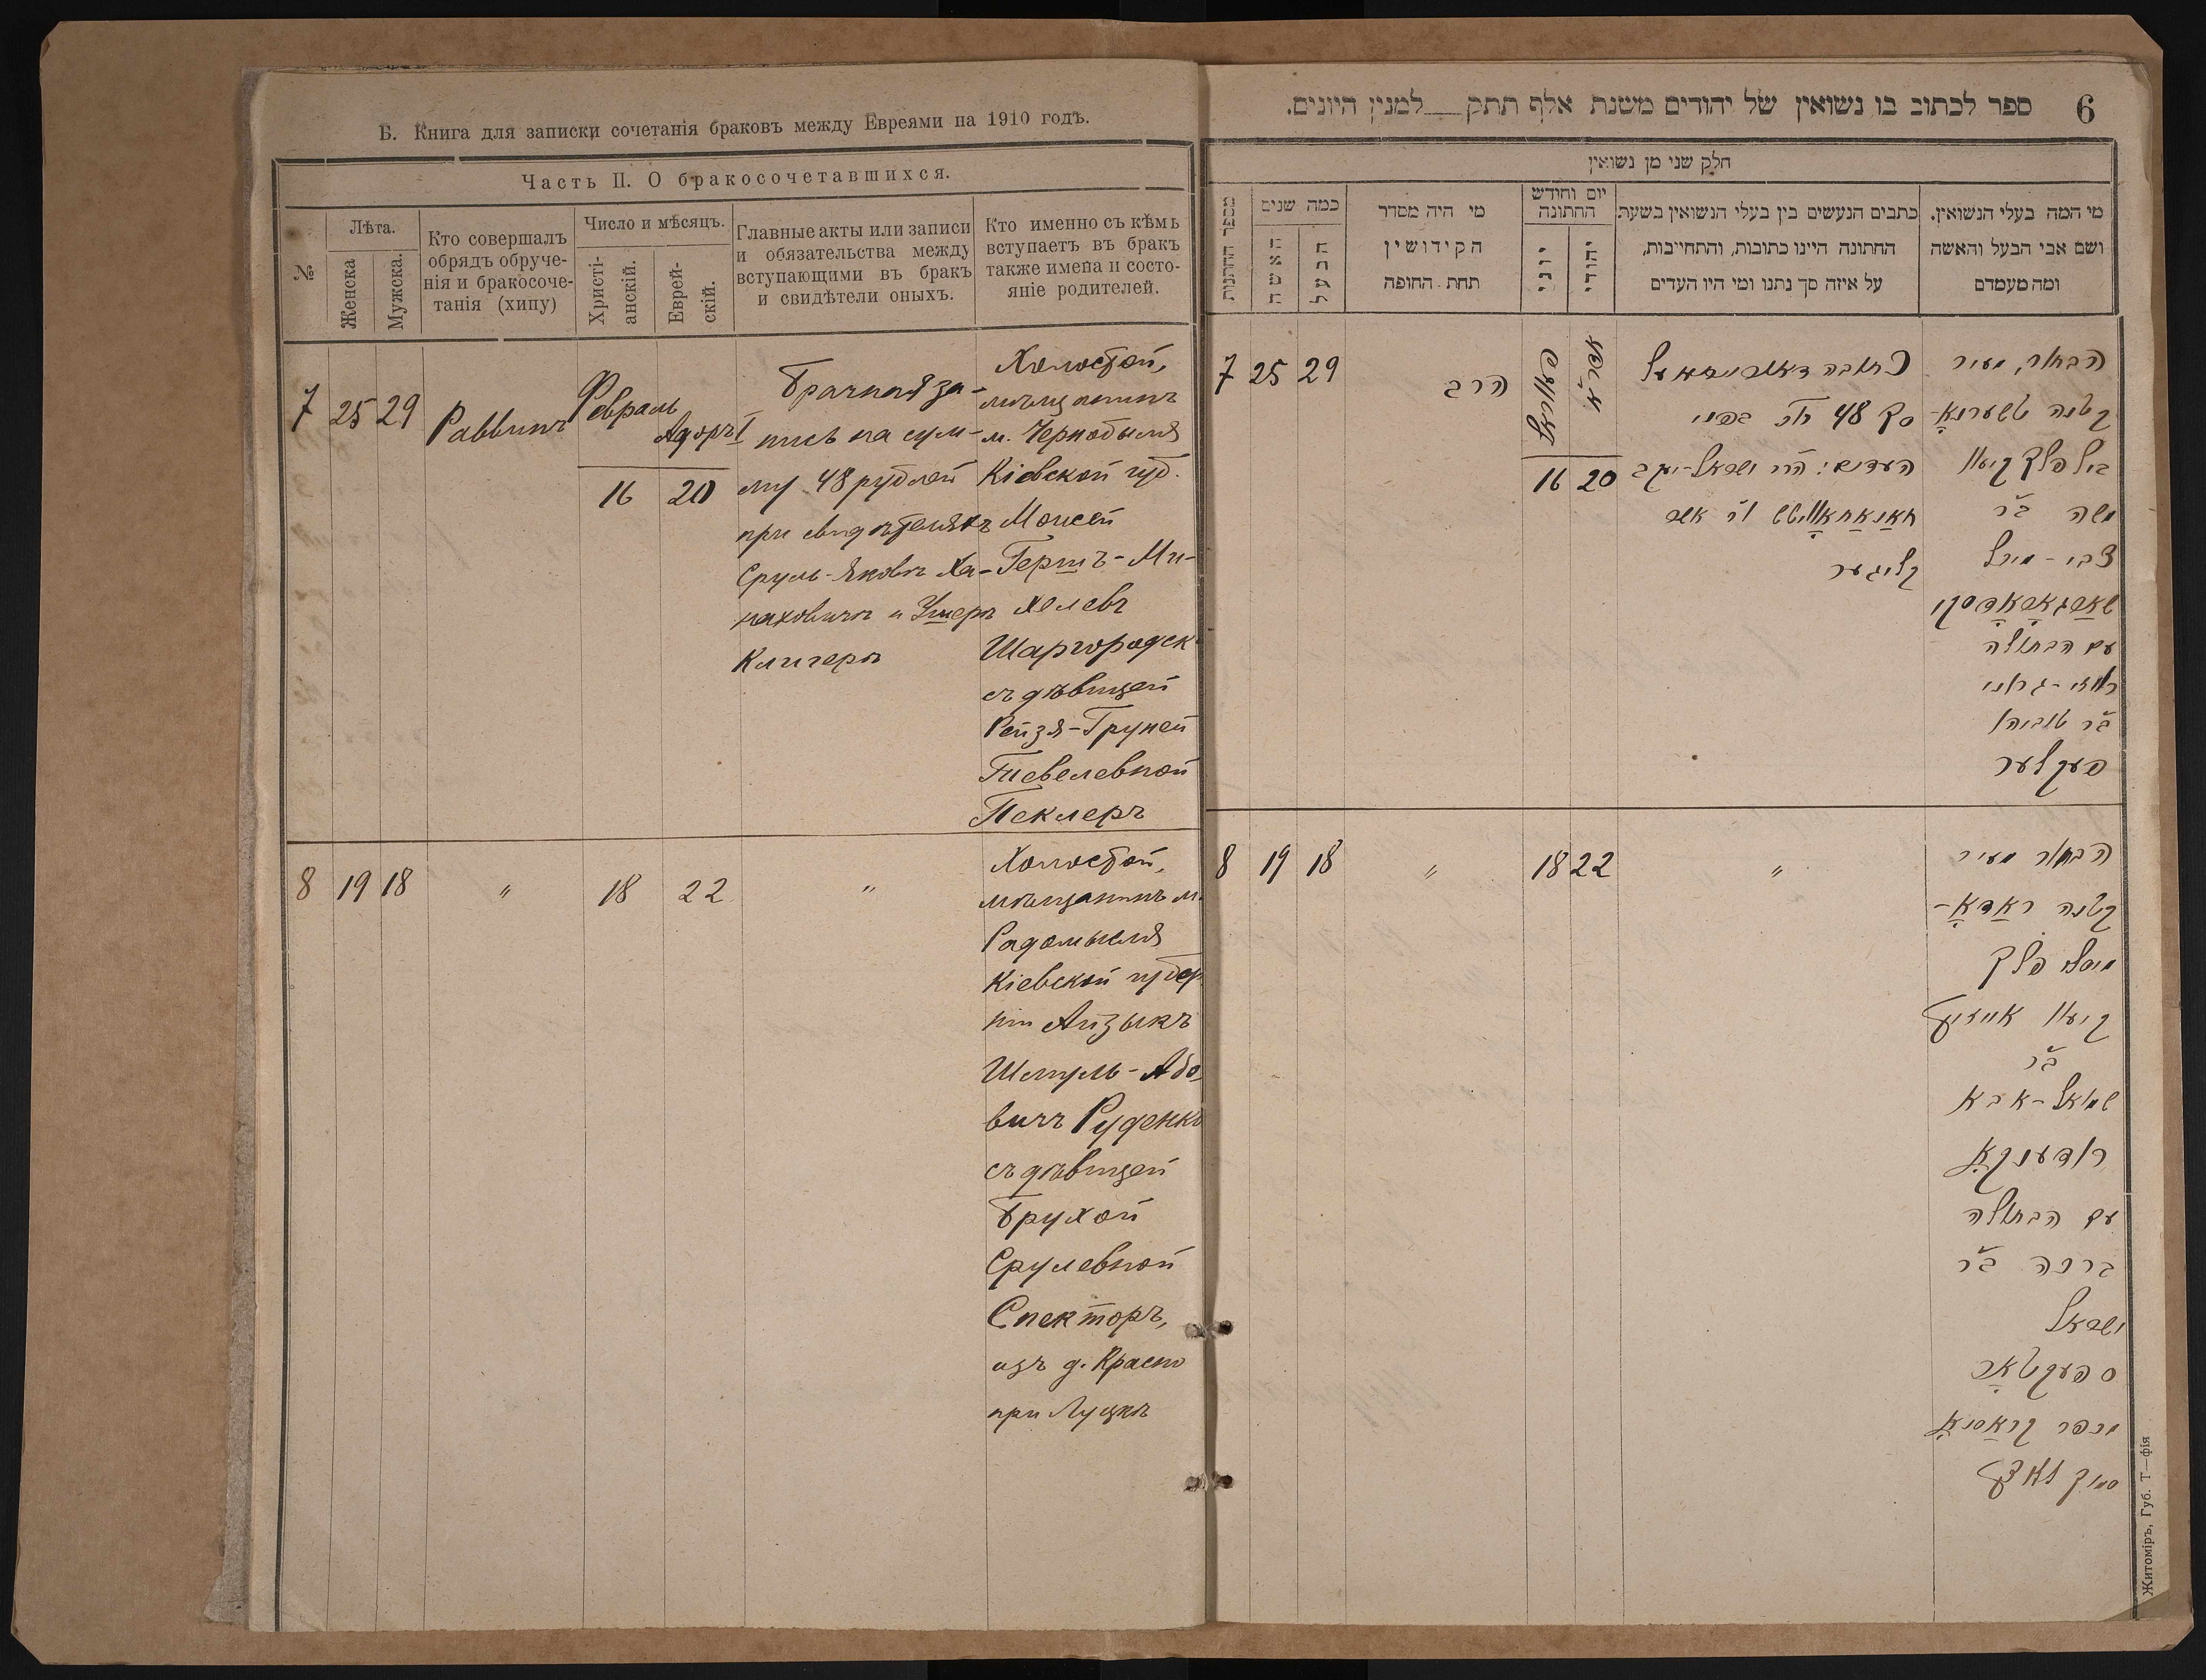 Б. Книга для записки сочетанія браковъ между Евреями на 1910 годъ.
Часть II. О бракосочетавшихся.
№
Лѣта.
Женска
Мужска.
Кто совершалъ
обрядъ обруче-
нія и бракосоче-
танія (хипу)
Число и мѣсяцъ.
Христі-
анскій.
Еврей-
скій.
Главные акты или записи
и обязательства между
вступающими въ бракъ
и свидѣтели оныхъ.
Кто именно съ кѣмъ
вступаетъ въ бракъ
также имена и состо-
яніе родителей.
7
25
29
Раввинъ
Февраль
16
Адоръ I
20
Брачная за-
пись на сум-
му 48 рублей
при свидѣтеляхъ
Сруль-Яковъ Ха-
наховичъ и Ушеръ
Клигеръ
Холостой,
мѣщанинъ
м. Чернобыля
Кіевской губ.
Моисей
Гершъ-Ми-
хелевъ
Шаргородск
съ дѣвицей
Рейзя-Груней
Тевелевной
Пеклеръ
8
19
18
"
18
22
"
Холостой,
мѣщанинъ м.
Радомысля
Кіевской губер
ніи Айзыкъ
Шмуль-Або
вичъ Руденко
съ дѣвицей
Брухой
Срулевной
Спекторъ,
изъ д. Красно
при Луцкѣ
6
ספר לכתוב בו נשואין של יהודים משנת אלף תתק__למנין היונים.
חלק שני מן נשואין
מספר החתונות
כמה שנים
האשה
הבעל
מי היה מסדר
הקידושין
תחת החופה
יום וחודש
החתונה
יוני
יהודי
כתבים הנעשים בין בעלי הנשואין בשעת
החתונה היינו כתובות, והתחייבות,
על איזה סך נתנו ומי היו העדים
מי המה בעלי הנשואין.
ושם אבי הבעל והאשה
ומה מעמדם
7
25
29
הרב
16
20
סך 48 רו׳ בפני
העדים: ה״ר ישראל-יעקב
קליגער
הבחור, מעיר
קטנה טשערנאָ-
ביל פלך קיעוו
משה ב״ר
צבי-מיכל
שאַרגאָראָדסקי
עם הבתולה
רייזי-גרוני
ב״ר טובי׳
פעקלער
8
19
18
"
18
22
"
הבחור מעיר
קטנה ראַדאָ-
מיסלי פלך
קיעוו אייזיק
ב״ר
שמואל-אבא
רודענקאָ
עם הבתולה
ברכה ב״ר
ישראל
ספעקטאָר
מכפר קראַסנאָ
סמוך לוצק
Житоміръ, Губ. Т—фія